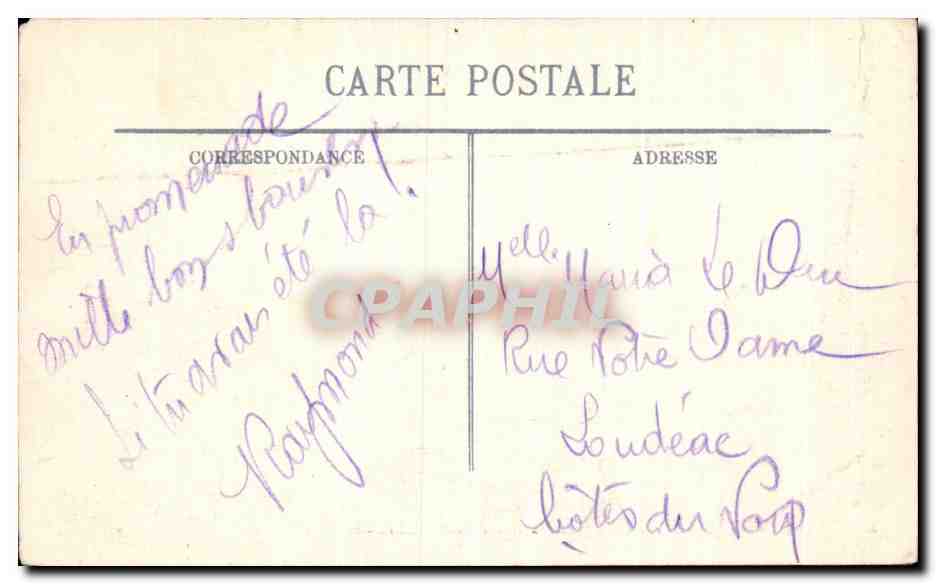 CARTE POSTALE
CORRESPONDANCE
En promenade
mille bons baisers
Si tu avais été la !
Raymond
ADRESSE
Melle Maria Le Duc
Rue Notre Dame
Loudéac
Côtes du Nord
CPAPHIL